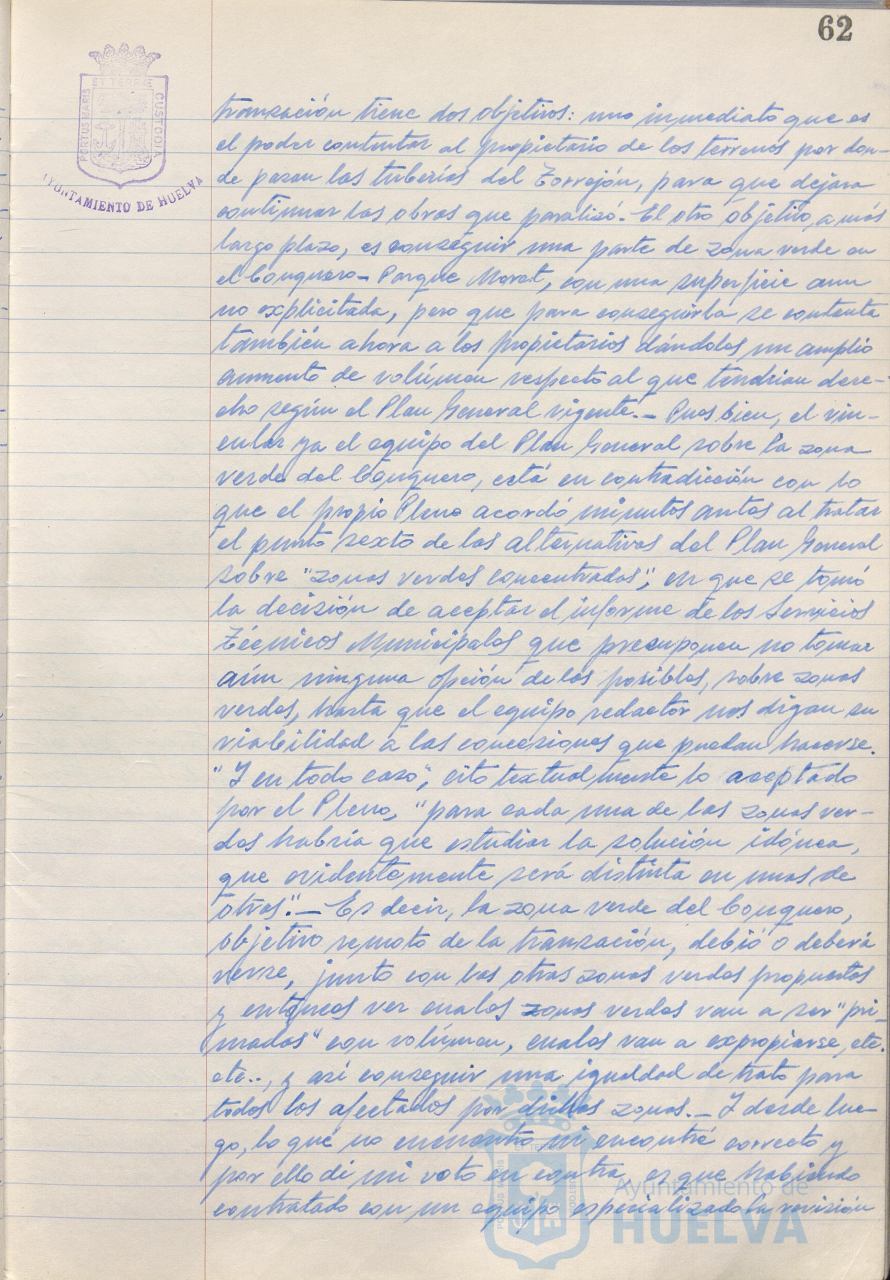 62
PORTUS MARIS ET TERRAE CUSTODIA
AYUNTAMIENTO DE HUELVA
tranzación tiene dos objetivos: uno inmediato que es
el poder contentar al propietario de los terrenos por don-
de pasan las tuberías del Torrejón, para que dejara
continuar las obras que paralizó.- El otro objetivo, a más
largo plazo, es conseguir una parte de zona verde en
el Conquero- Parque Moret, con una superficie aun
no explicitada, pero que para conseguirla se contenta
también ahora a los propietarios dándoles un amplio
aumento de volúmen respecto al que tendrian dere-
cho según el Plan General vigente.- Pues bien, el vin-
cular ya el equipo del Plan General sobre la zona
verde del Conquero, está en contradicción con lo
que el propio Pleno acordó minutos antes al tratar
el punto sexto de las alternativas del Plan General
sobre "zonas verdes concentradas", en que se tomó
la decisión de aceptar el informe de los Servicios
Técnicos Municipales que presuponen no tomar
aún ninguna opción de las posibles, sobre zonas
verdes, hasta que el equipo redactor nos digan su
viabilidad a las concesiones que puedan hacerse.
"Y en todo caso", cito textualmente lo aceptado
por el Pleno, "para cada una de las zonas ver-
des habría que estudiar la solución idónea,
que evidentemente será distinta en unas de
otras".- Es decir, la zona verde del Conquero,
objetivo remoto de la tranzación, debió o deberá
verse, junto con las otras zonas verdes propuestas
y entonces ver cuales zonas verdes van a ser "pri-
madas" con volúmen, cuales van a expropiarse, etc.
etc.., y así conseguir una igualdad de trato para
todos los afectados por dichas zonas.- Y desde lue-
go, lo que no encuentro ni encontré correcto y
por ello di mi voto en contra, es que habiendo
contratado con un equipo especializado la revisión
Ayuntamiento de
HUELVA